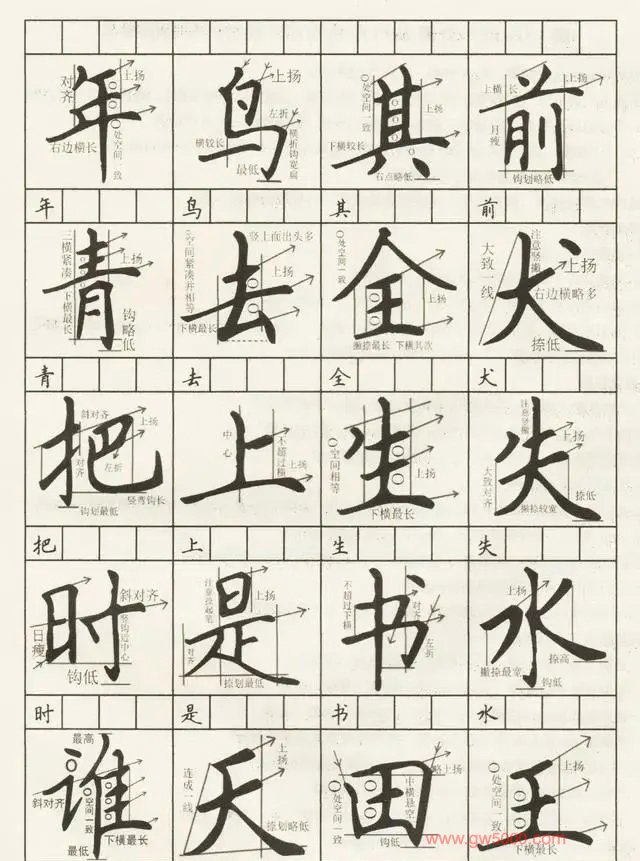 年 鸟 其 前
对齐
上扬
右边横长
○处空间一致
上扬
左折
横较长
横折钩宽扁
最低
○处空间一致
上扬
下横较长
右点略低
上横长
上扬
月瘦
钩划略低
年 鸟 其 前
青 去 全 犬
三横紧凑
下横最长
上扬
钩略低
○空间紧凑并相等
竖上面出头多
上扬
下横最长
○处空间一致
上扬
撇捺最长
下横其次
大致一线
注意竖撇
上扬
右边横略多
捺低
青 去 全 犬
把 上 生 失
斜对齐
上扬
对齐
左折
竖弯钩长
钩划最低
中心
不超过横
上扬
○空间相等
上扬
下横最长
注意竖撇
上扬
大致对齐
捺低
撇捺较宽
把 上 生 失
时 是 书 水
斜对齐
日瘦
竖钩近中心
钩低
注意捺起笔
上扬
对齐
捺划最低
不超过下横
对齐
上扬
左折
上扬
捺高
撇捺最宽
钩低
时 是 书 水
谁 天 田 王
最高
斜对齐
○空间一致
下横最长
最低
连成一线
上扬
捺划略低
○处空间一致
略上扬
中横悬空
钩低
○处空间一致
上扬
下横最长
www.gw5000.com